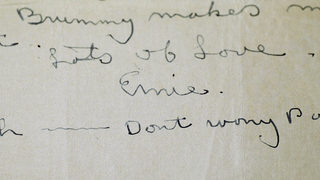 Brummy makes m
Lots of Love.
Ernie.
h — Dont worry Pa